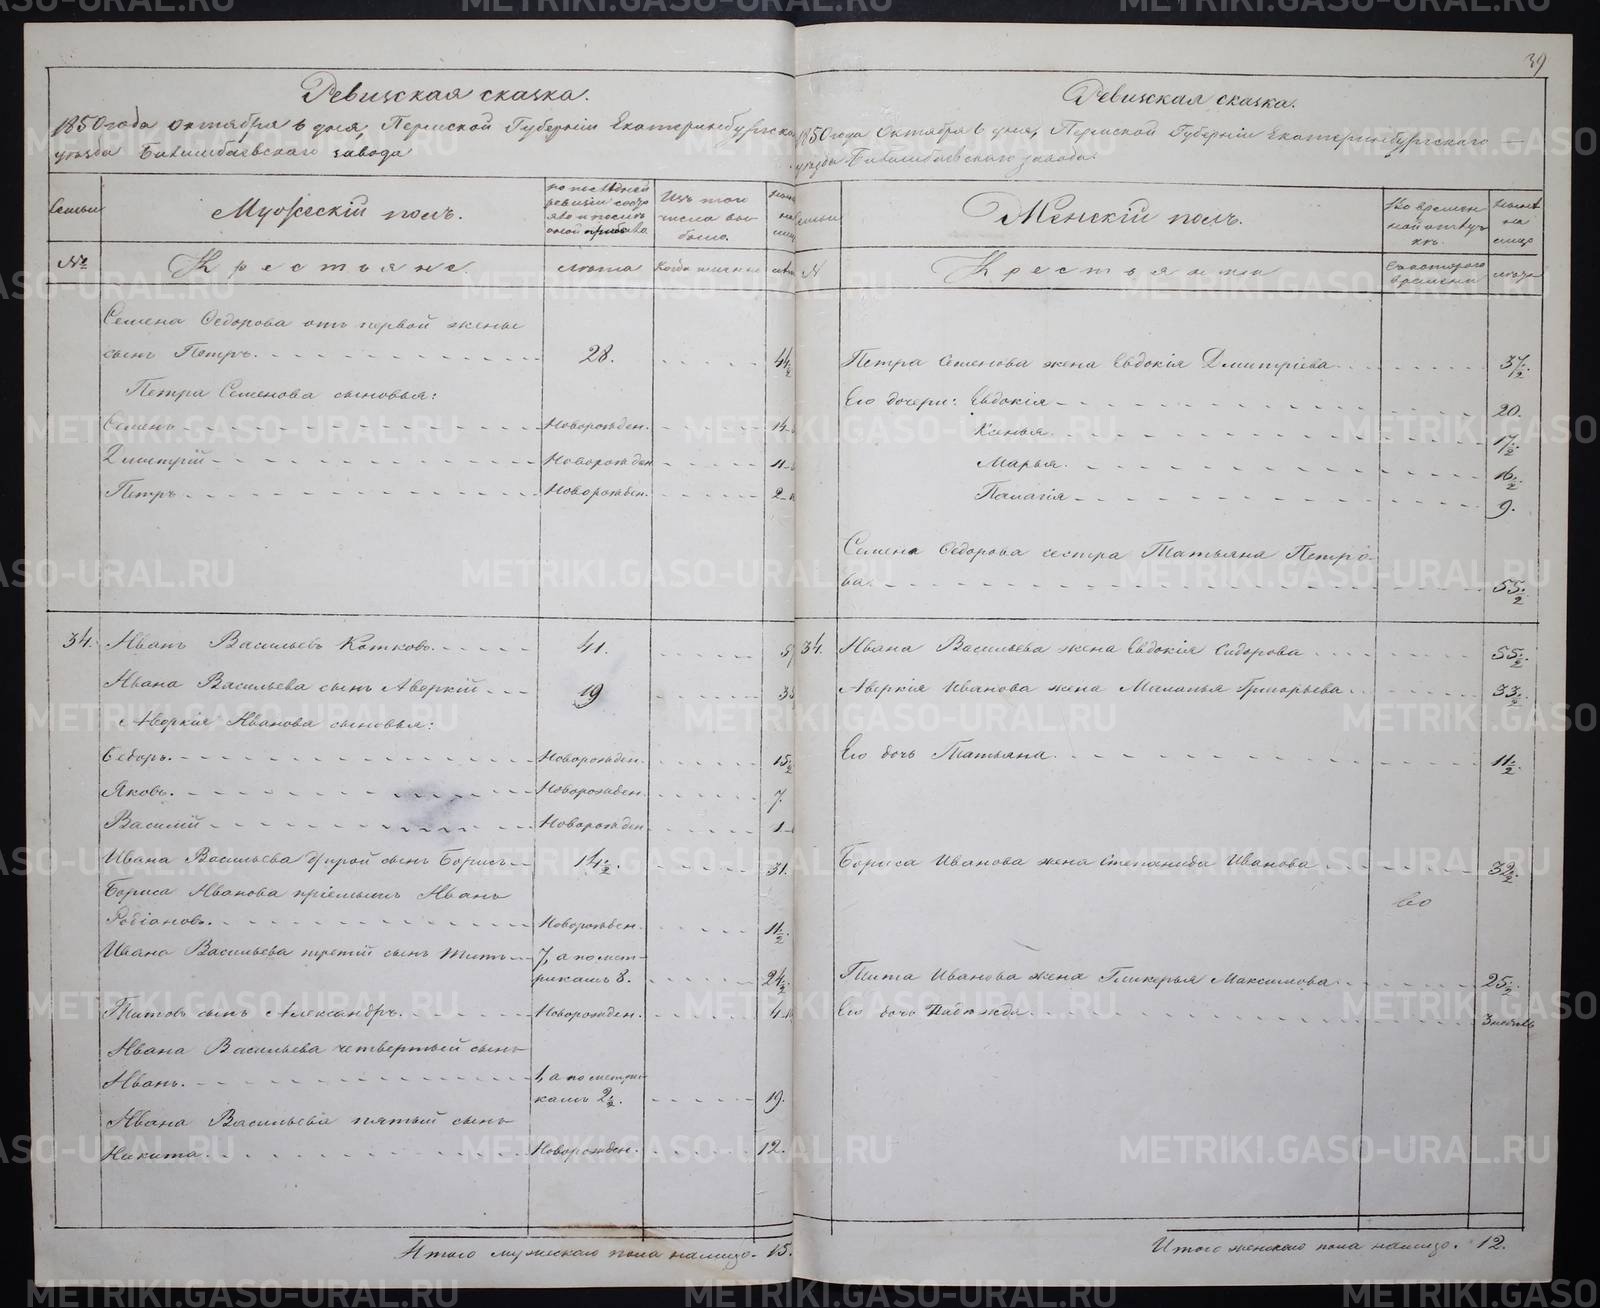 39
Ревизская сказка.
1850 года октября 6 дня, Пермской Губерніи Екатеринбургска
уезда Билимбаевскаго завода
Семьи
Мужескій полъ.
по последней ревизіи состояло и после оной прибыло
Изъ того числа выбыло.
№
Крестьяне.
лета
Когда именно
Семена Федорова отъ первой жены
сынъ Петръ. 28. 44½
Петра Семенова сыновья:
Семенъ Новорожден. 14
Дмитрій Новорожден 11
Петръ Новорожден. 2
34. Иванъ Васильевъ Катковъ. 41.
Ивана Васильева сынъ Аверкій 19
Аверкія Иванова сыновья:
Федоръ. Новорожден. 15½
Яковъ. Новорожден. 7.
Василій Новорожден 1
Ивана Васильева другой сынъ Борисъ 14½. 31.
Бориса Иванова пріемышъ Иванъ
Родіоновъ. Новорожден. 11½.
Ивана Васильева третій сынъ Титъ 7, а по мет-
рикамъ 8. 24½
Титовъ сынъ Александръ. Новорожден. 4
Ивана Васильева четвертый сынъ
Иванъ. 1, а по метри
камъ 2½. 19.
Ивана Васильева пятый сынъ
Никита. Новорожден. 12.
Итого мужескаго пола налицо. 15.
Ревизская сказка.
1850 года Октября 6 дня, Пермской Губерніи Екатеринбургскаго
уезда Билимбаевскаго завода.
Семьи
Женскій полъ.
Во времен
ной отлуч
ке.
Ныне
на
лицо
N
Крестьянки
Съ котораго
времени
лета
Петра Семенова жена Евдокія Дмитріева. 37½.
Его дочери: Евдокія 20.
Ксенья. 17½
Марья. 16½
Палагія 9.
Семена Федорова сестра Татьяна Петро-
ва. 55½
34. Ивана Васильева жена Евдокія Сидорова 55½
Аверкія Иванова жена Маланья Григорьева 33½
Его дочь Татьяна. 11½.
Бориса Иванова жена Степанида Иванова 32½.
Ео
Тита Иванова жена Гликерья Максимова. 25½.
Его дочь Надежда. 3 недель
Итого женскаго пола налицо. 12.
METRIKI.GASO-URAL.RU